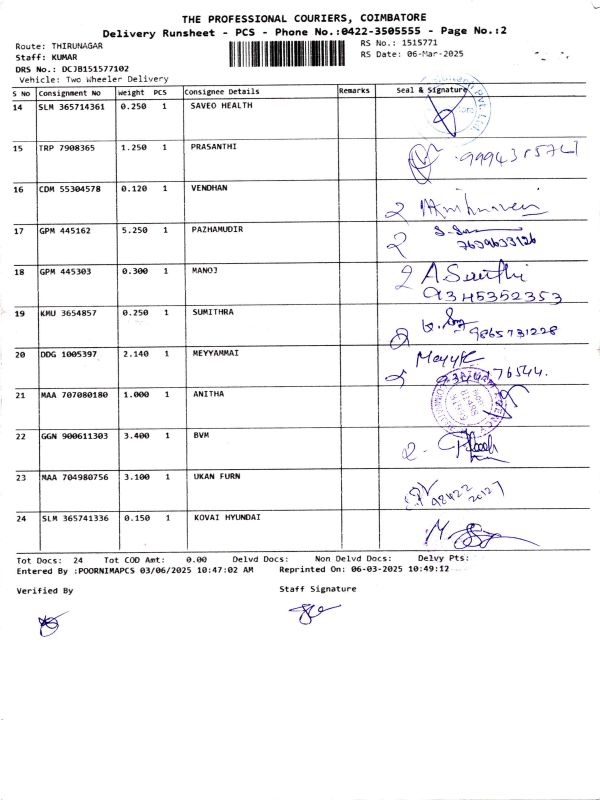 THE PROFESSIONAL COURIERS, COIMBATORE
Delivery Runsheet - PCS - Phone No.:0422-3505555 - Page No.:2
Route: THIRUNAGAR
RS No.: 1515771
Staff: KUMAR
RS Date: 06-Mar-2025
DRS No.: DCJB151577102
Vehicle: Two Wheeler Delivery
S No Consignment No Weight PCS Consignee Details Remarks Seal & Signature
14 SLM 365714361 0.250 1 SAVEO HEALTH
15 TRP 7908365 1.250 1 PRASANTHI
16 CDM 55304578 0.120 1 VENDHAN
17 GPM 445162 5.250 1 PAZHAMUDIR
7639633126
18 GPM 445303 0.300 1 MANOJ
9345352353
19 KMU 3654857 0.250 1 SUMITHRA
9865731228
20 DDG 1005397 2.140 1 MEYYAMMAI
21 MAA 707080180 1.000 1 ANITHA
22 GGN 900611303 3.400 1 BVM
23 MAA 704980756 3.100 1 UKAN FURN
24 SLM 365741336 0.150 1 KOVAI HYUNDAI
Tot Docs: 24 Tot COD Amt: 0.00 Delvd Docs: Non Delvd Docs: Delvy Pts:
Entered By :POORNIMAPCS 03/06/2025 10:47:02 AM Reprinted On: 06-03-2025 10:49:12
Verified By
Staff Signature